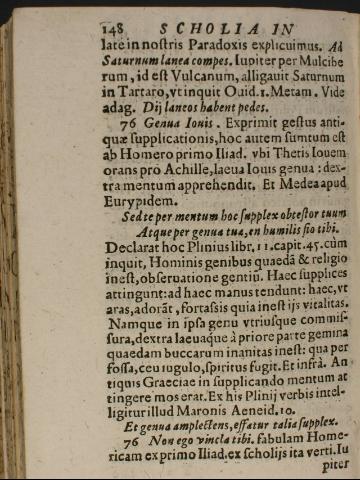 148 SCHOLIA IN
late in nostris Paradoxis explicuimus. Ad
Saturnum lanea compes. Iupiter per Mulcibe
rum, id est Vulcanum, alligauit Saturnum
in Tartaro, vt inquit Ouid. 1. Metam. Vide
adag. Dij laneos habent pedes.
76 Genua Iouis. Exprimit gestus anti-
quæ supplicationis, hoc autem sumtum est
ab Homero primo Iliad. vbi Thetis Iouem
orans pro Achille, læua Iouis genua: dex-
tra mentum apprehendit. Et Medea apud
Eurypidem.
Sed te per mentum hoc supplex obtestor tuum
Atque per genua tua, en humilis fio tibi.
Declarat hoc Plinius libr. 11. capit. 45. cùm
inquit, Hominis genibus quaedā & religio
inest, obseruatione gentiū. Haec supplices
attingunt: ad haec manus tendunt: haec, vt
aras, adorāt, fortassis quia inest ijs vitalitas.
Namque in ipsa genu vtriusque commis-
sura, dextra laeuaque à priore parte gemina
quaedam buccarum inanitas inest: qua per
fossa, ceu iugulo, spiritus fugit. Et infrà. An
tiquis Graeciae in supplicando mentum at
tingere mos erat. Ex his Plinij verbis intel-
ligitur illud Maronis Aeneid. 10.
Et genua amplectens, effatur talia supplex.
76 Non ego vincla tibi. fabulam Home-
ricam ex primo Iliad. ex scholijs ita verti. Iu
piter